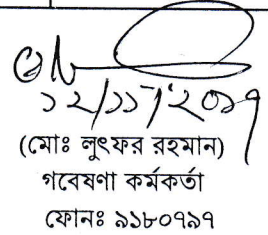 ১২/১১/২০১৭
(মোঃ লুৎফর রহমান)
গবেষণা কর্মকর্তা
ফোনঃ ৯১৮০৭৯৭